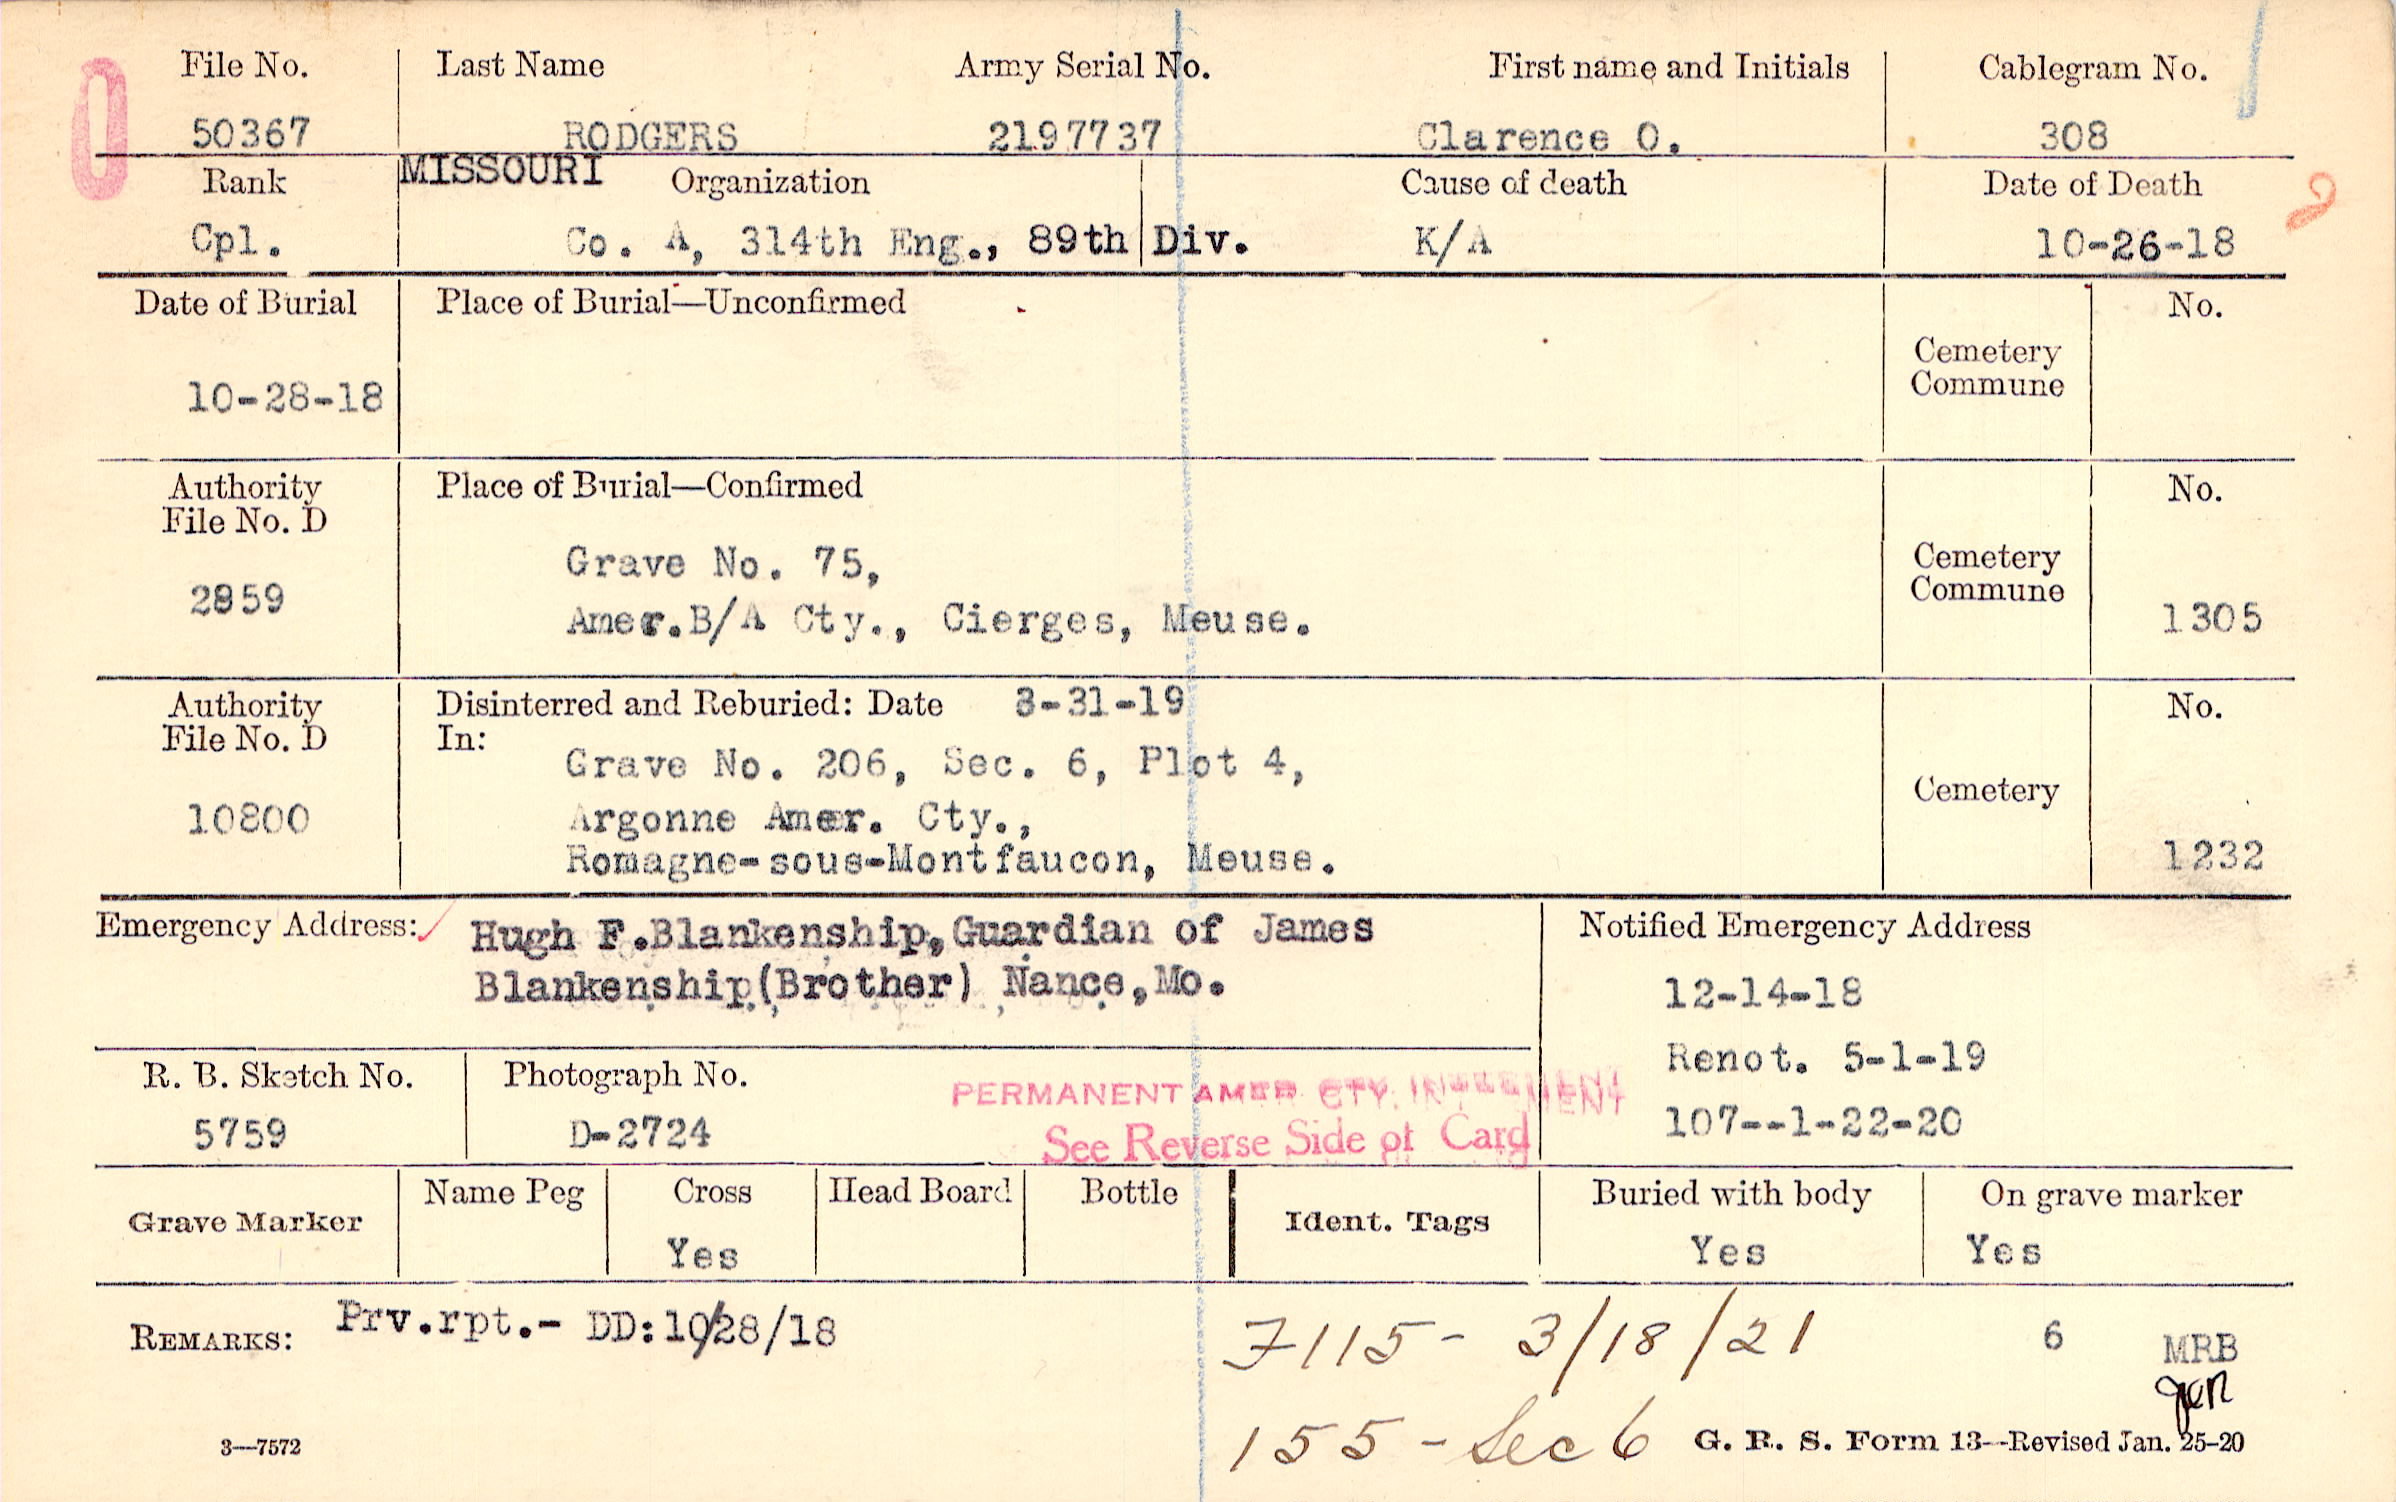 File No. Last Name Army Serial No. First name and Initials Cablegram No.
50367 RODGERS 2197737 Clarence O. 308
Rank MISSOURI Organization Cause of death Date of Death
Cpl. Co. A, 314th Eng., 89th Div. K/A 10-26-18
Date of Burial Place of Burial—Unconfirmed No.
Cemetery
Commune
10-28-18
Authority Place of Burial—Confirmed No.
File No. D
Grave No. 75,
Cemetery
Commune
2859
Amer.B/A Cty., Cierges, Meuse. 1305
Authority Disinterred and Reburied: Date 3-31-19 No.
File No. D In:
Grave No. 206, Sec. 6, Plot 4,
Cemetery
10800 Argonne Amer. Cty.,
Romagne-sous-Montfaucon, Meuse. 1232
Emergency Address: Hugh F.Blankenship,Guardian of James Notified Emergency Address
Blankenship(Brother) Nance,Mo. 12-14-18
Renot. 5-1-19
R. B. Sketch No. Photograph No.
PERMANENT AMER CTY. INTERMENT
5759 D-2724 107--1-22-20
See Reverse Side of Card
Name Peg Cross Head Board Bottle Buried with body On grave marker
Grave Marker Ident. Tags
Yes Yes Yes
REMARKS: Prv.rpt.- DD:10/28/18 7115- 3/18/21 6 MRB
155-Sec 6
3—7572 G. R. S. Form 13—Revised Jan. 25-20